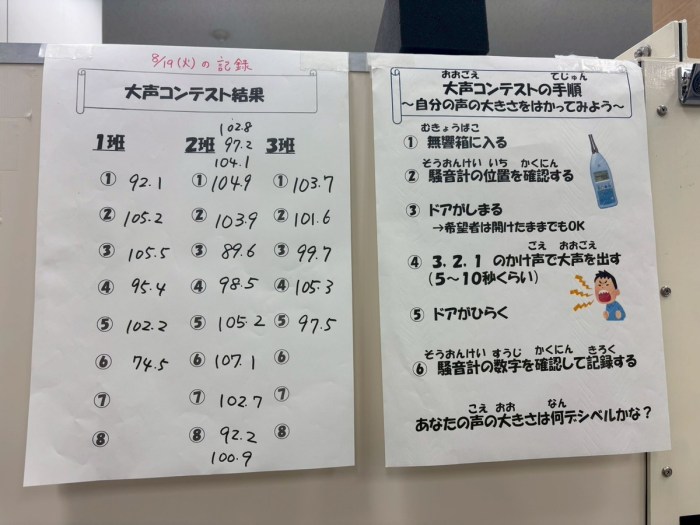 8/19(火)の記録
大声コンテスト結果
1班 2班 3班
102.8
97.2
104.1
① 92.1 ① 104.9 ① 103.7
② 105.2 ② 103.9 ② 101.6
③ 105.5 ③ 89.6 ③ 99.7
④ 95.4 ④ 98.5 ④ 105.3
⑤ 102.2 ⑤ 105.2 ⑤ 97.5
⑥ 74.5 ⑥ 107.1 ⑥
⑦ ⑦ 102.7 ⑦
⑧ ⑧ 92.2 ⑧
100.9
おおごえ てじゅん
大声コンテストの手順
～自分の声の大きさをはかってみよう～
むきょうばこ
① 無響箱に入る
そうおんけい いち かくにん
② 騒音計の位置を確認する
③ ドアがしまる
→希望者は開けたままでもOK
こえ おおごえ
④ 3、2、1 のかけ声で大声を出す
(5～10秒くらい)
⑤ ドアがひらく
そうおんけい すうじ かくにん きろく
⑥ 騒音計の数字を確認して記録する
こえ おお なん
あなたの声の大きさは何デシベルかな？